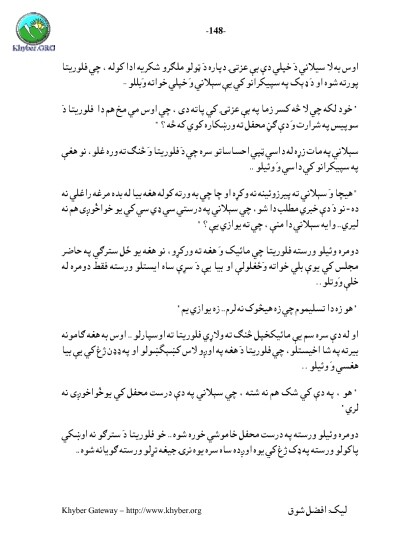 -148-
Khyber.ORG
اوس به لا سپلاني دَ خپلي دې بې عزتۍ دپاره دَ ټولو ملګرو شکريه ادا کوله ، چي فلوريتا
پورته شوه او دَ ډېک په سپيکرانو کي يې سپلاني وَ خپلي خواته وَبللو -
" خود لکه چي لا څه کسر زما په بې عزتۍ کي پاته دى ، چي اوس مي مخ هم دا فلوريتا دَ
سوپيس په شرارت وَ دې ګڼ محفل ته ورښکاره کوي که څه ؟ "
سپلاني په مات زړه له داسي ټيپي احساساتو سره چي دَ فلوريتا وَ څنګ ته ورغلو ، نو هغې
په سپيکرانو کي داسي وَ وئيلو ..
" هيچا وَ سپلاني ته پيرزوئينه نه وکړه او چا چي به ورته کوله هغه بيا له بده مرغه راغلي نه
ده - نو دَ دې خبري مطلب دا شو ، چي سپلاني په درستي سي ډي سي کي يو خواخوږى هم نه
لري.. وايه سپلاني دا مني ، چي ته يوازي يې ؟ "
دومره وئيلو ورسته فلوريتا چي مائيک وَ هغه ته ورکړو ، نو هغه يو ځل سترګي په حاضر
مجلس کي يوې بلي خواته وَځغلولې او بيا يې دَ سړې ساه ايستلو ورسته فقط دومره له
خلې وَوتلو ..
" هو زه دا تسليموم چي زه هيڅوک نه لرم.. زه يوازي يم "
او له دې سره سم يې مائيکخپل څنګ ته ولاړي فلوريتا ته اوسپارلو .. اوس به هغه ګامونه
بيرته په شا اخيستلو ، چي فلوريتا دَ هغه په اوږو لاس کښېګښولو او په ډډن ژغ کي يې بيا
هغسي وَ وئيلو ..
" هو ، په دې کي شک هم نه شته ، چي سپلاني په دې درست محفل کي يو خواخوږى نه
لري "
دومره وئيلو ورسته په درست محفل خاموشي خوره شوه .. خو فلوريتا دَ سترګو نه اوښکي
پاکولو ورسته په ډک ژغ کي يوه اوږده ساه سره يوه نرۍ جيغه تړلو ورسته ګويانه شوه ..
Khyber Gateway – http://www.khyber.org
ليک: افضل شوق